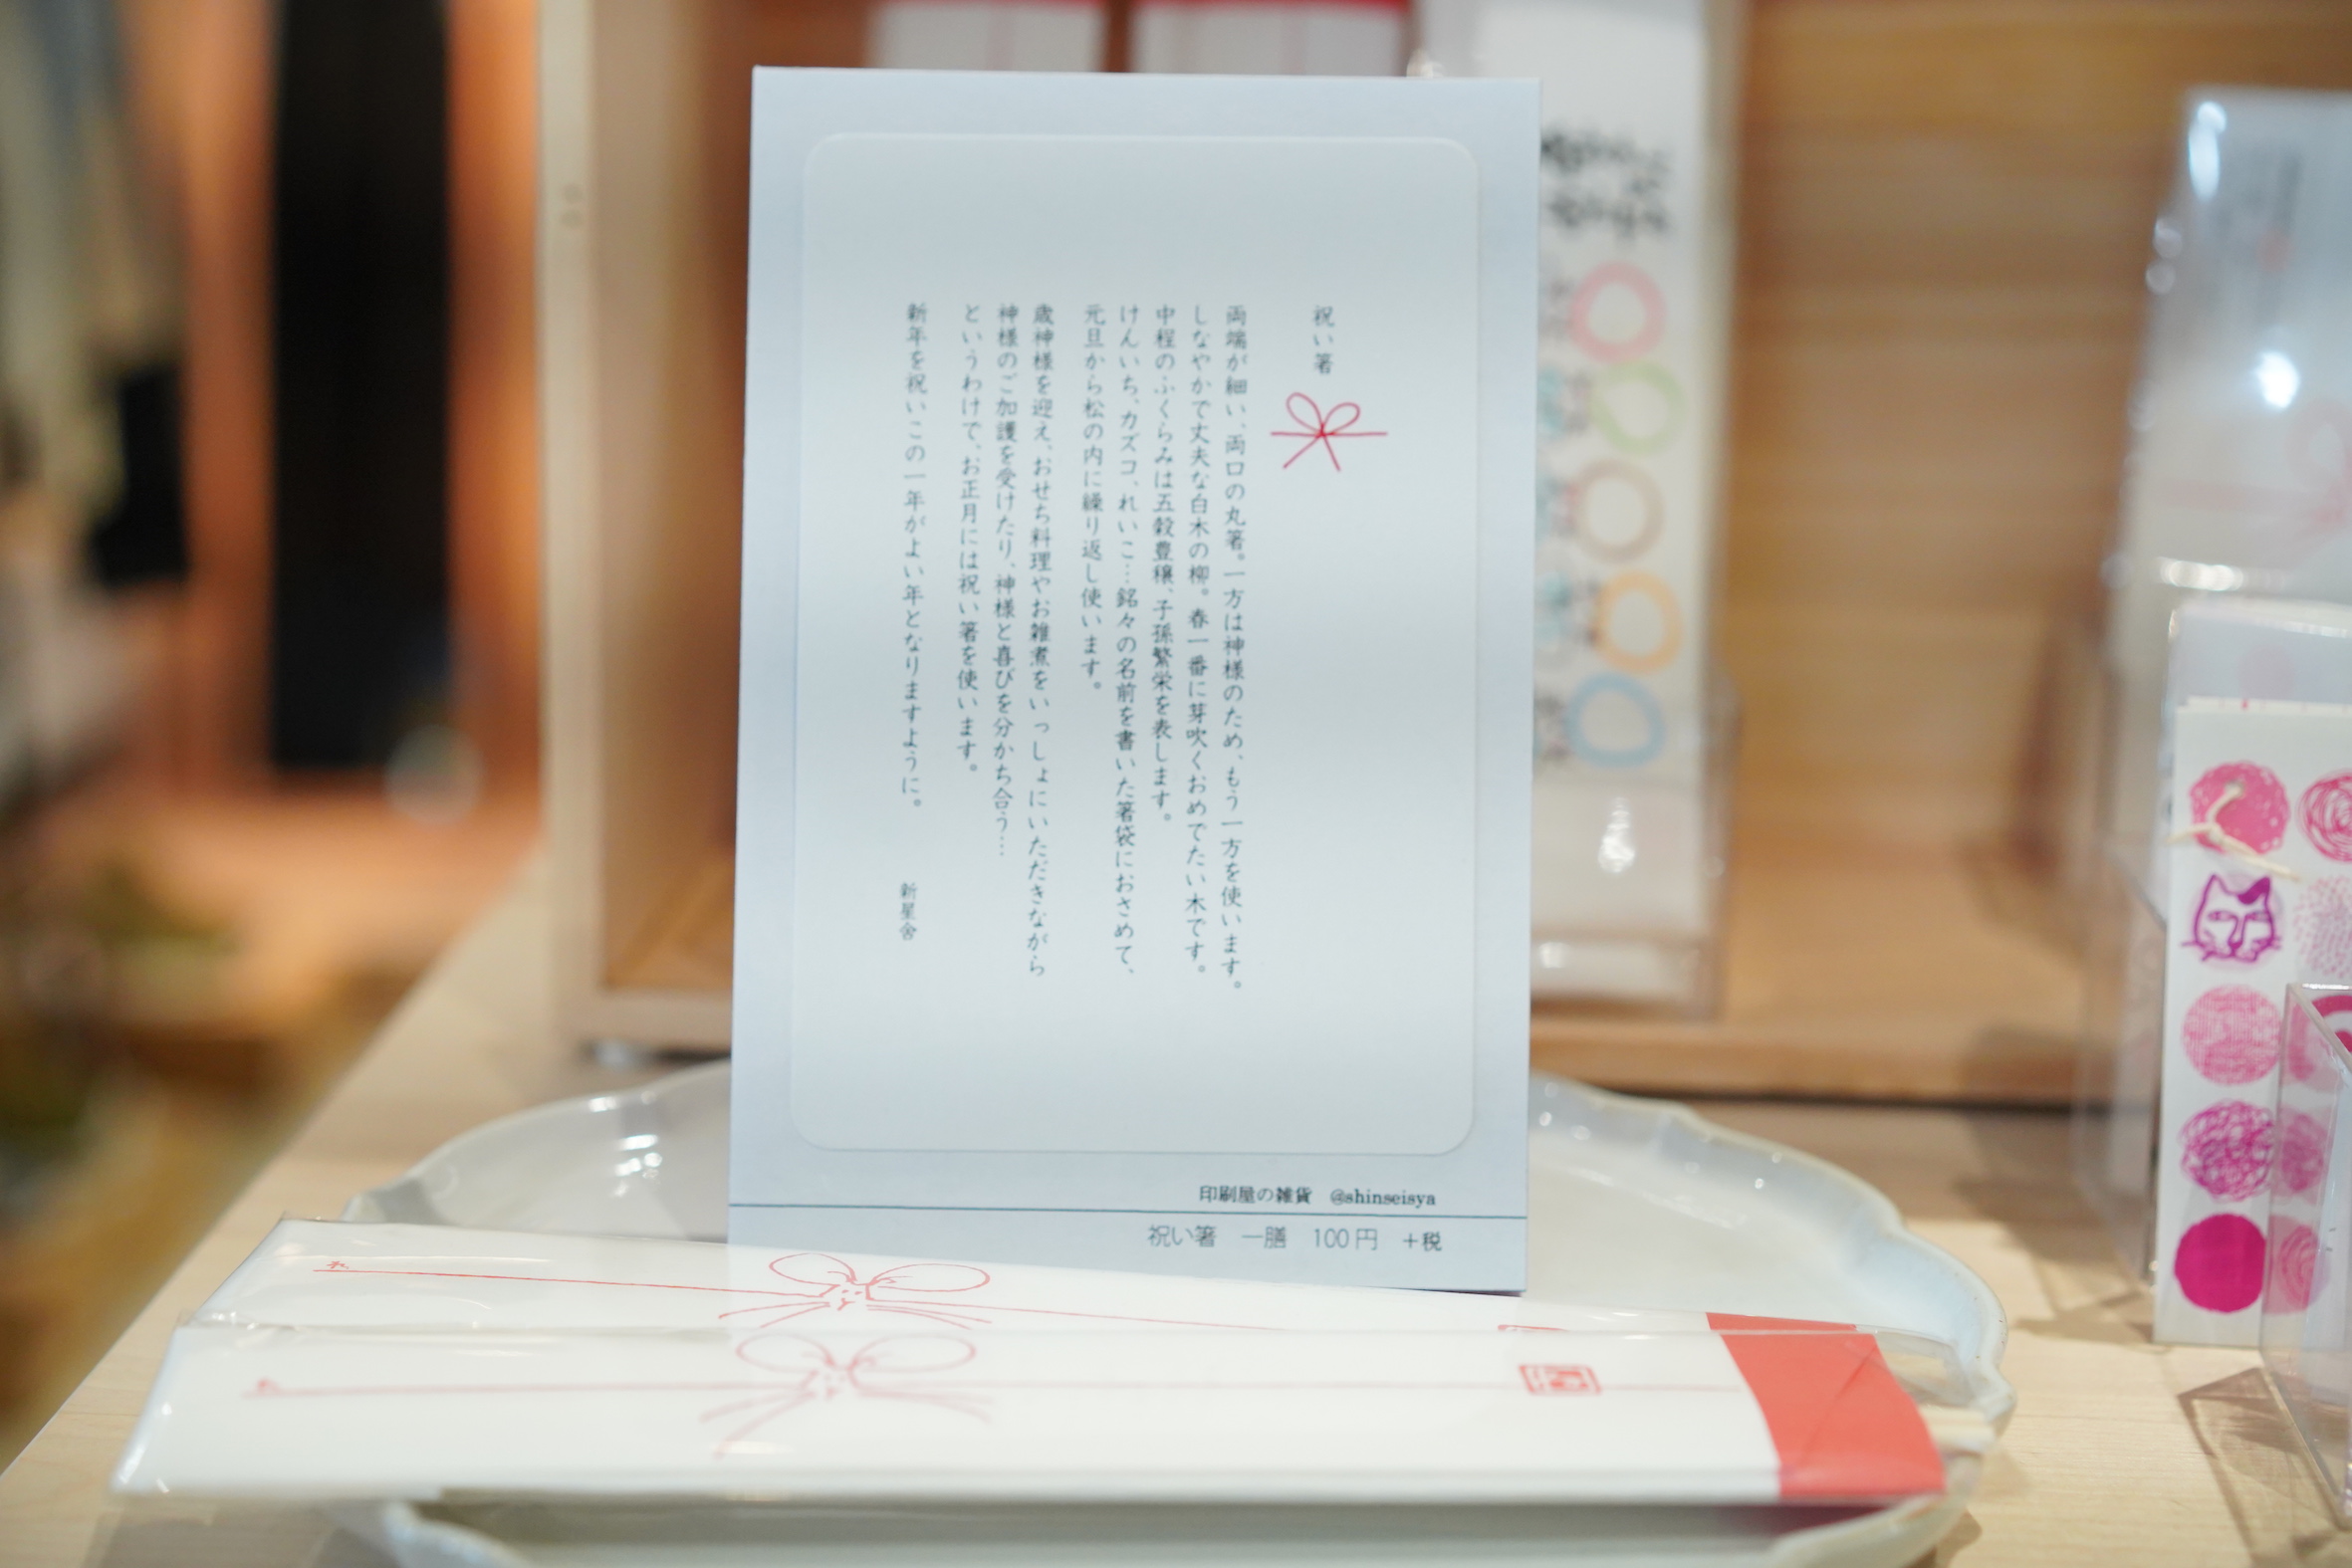 祝い箸
両端が細い、両口の丸箸。一方は神様のため、もう一方を使います。
しなやかで丈夫な白木の柳。春一番に芽吹くおめでたい木です。
中程のふくらみは五穀豊穣、子孫繁栄を表します。
けんいち、カズコ、れいこ…銘々の名前を書いた箸袋におさめて、
元旦から松の内に繰り返し使います。
歳神様を迎え、おせち料理やお雑煮をいっしょにいただきながら
神様のご加護を受けたり、神様と喜びを分かち合う…
というわけで、お正月には祝い箸を使います。
新年を祝いこの一年がよい年となりますように。 新星舎
印刷屋の雑貨 @shinseisya
祝い箸 一膳 100円 +税